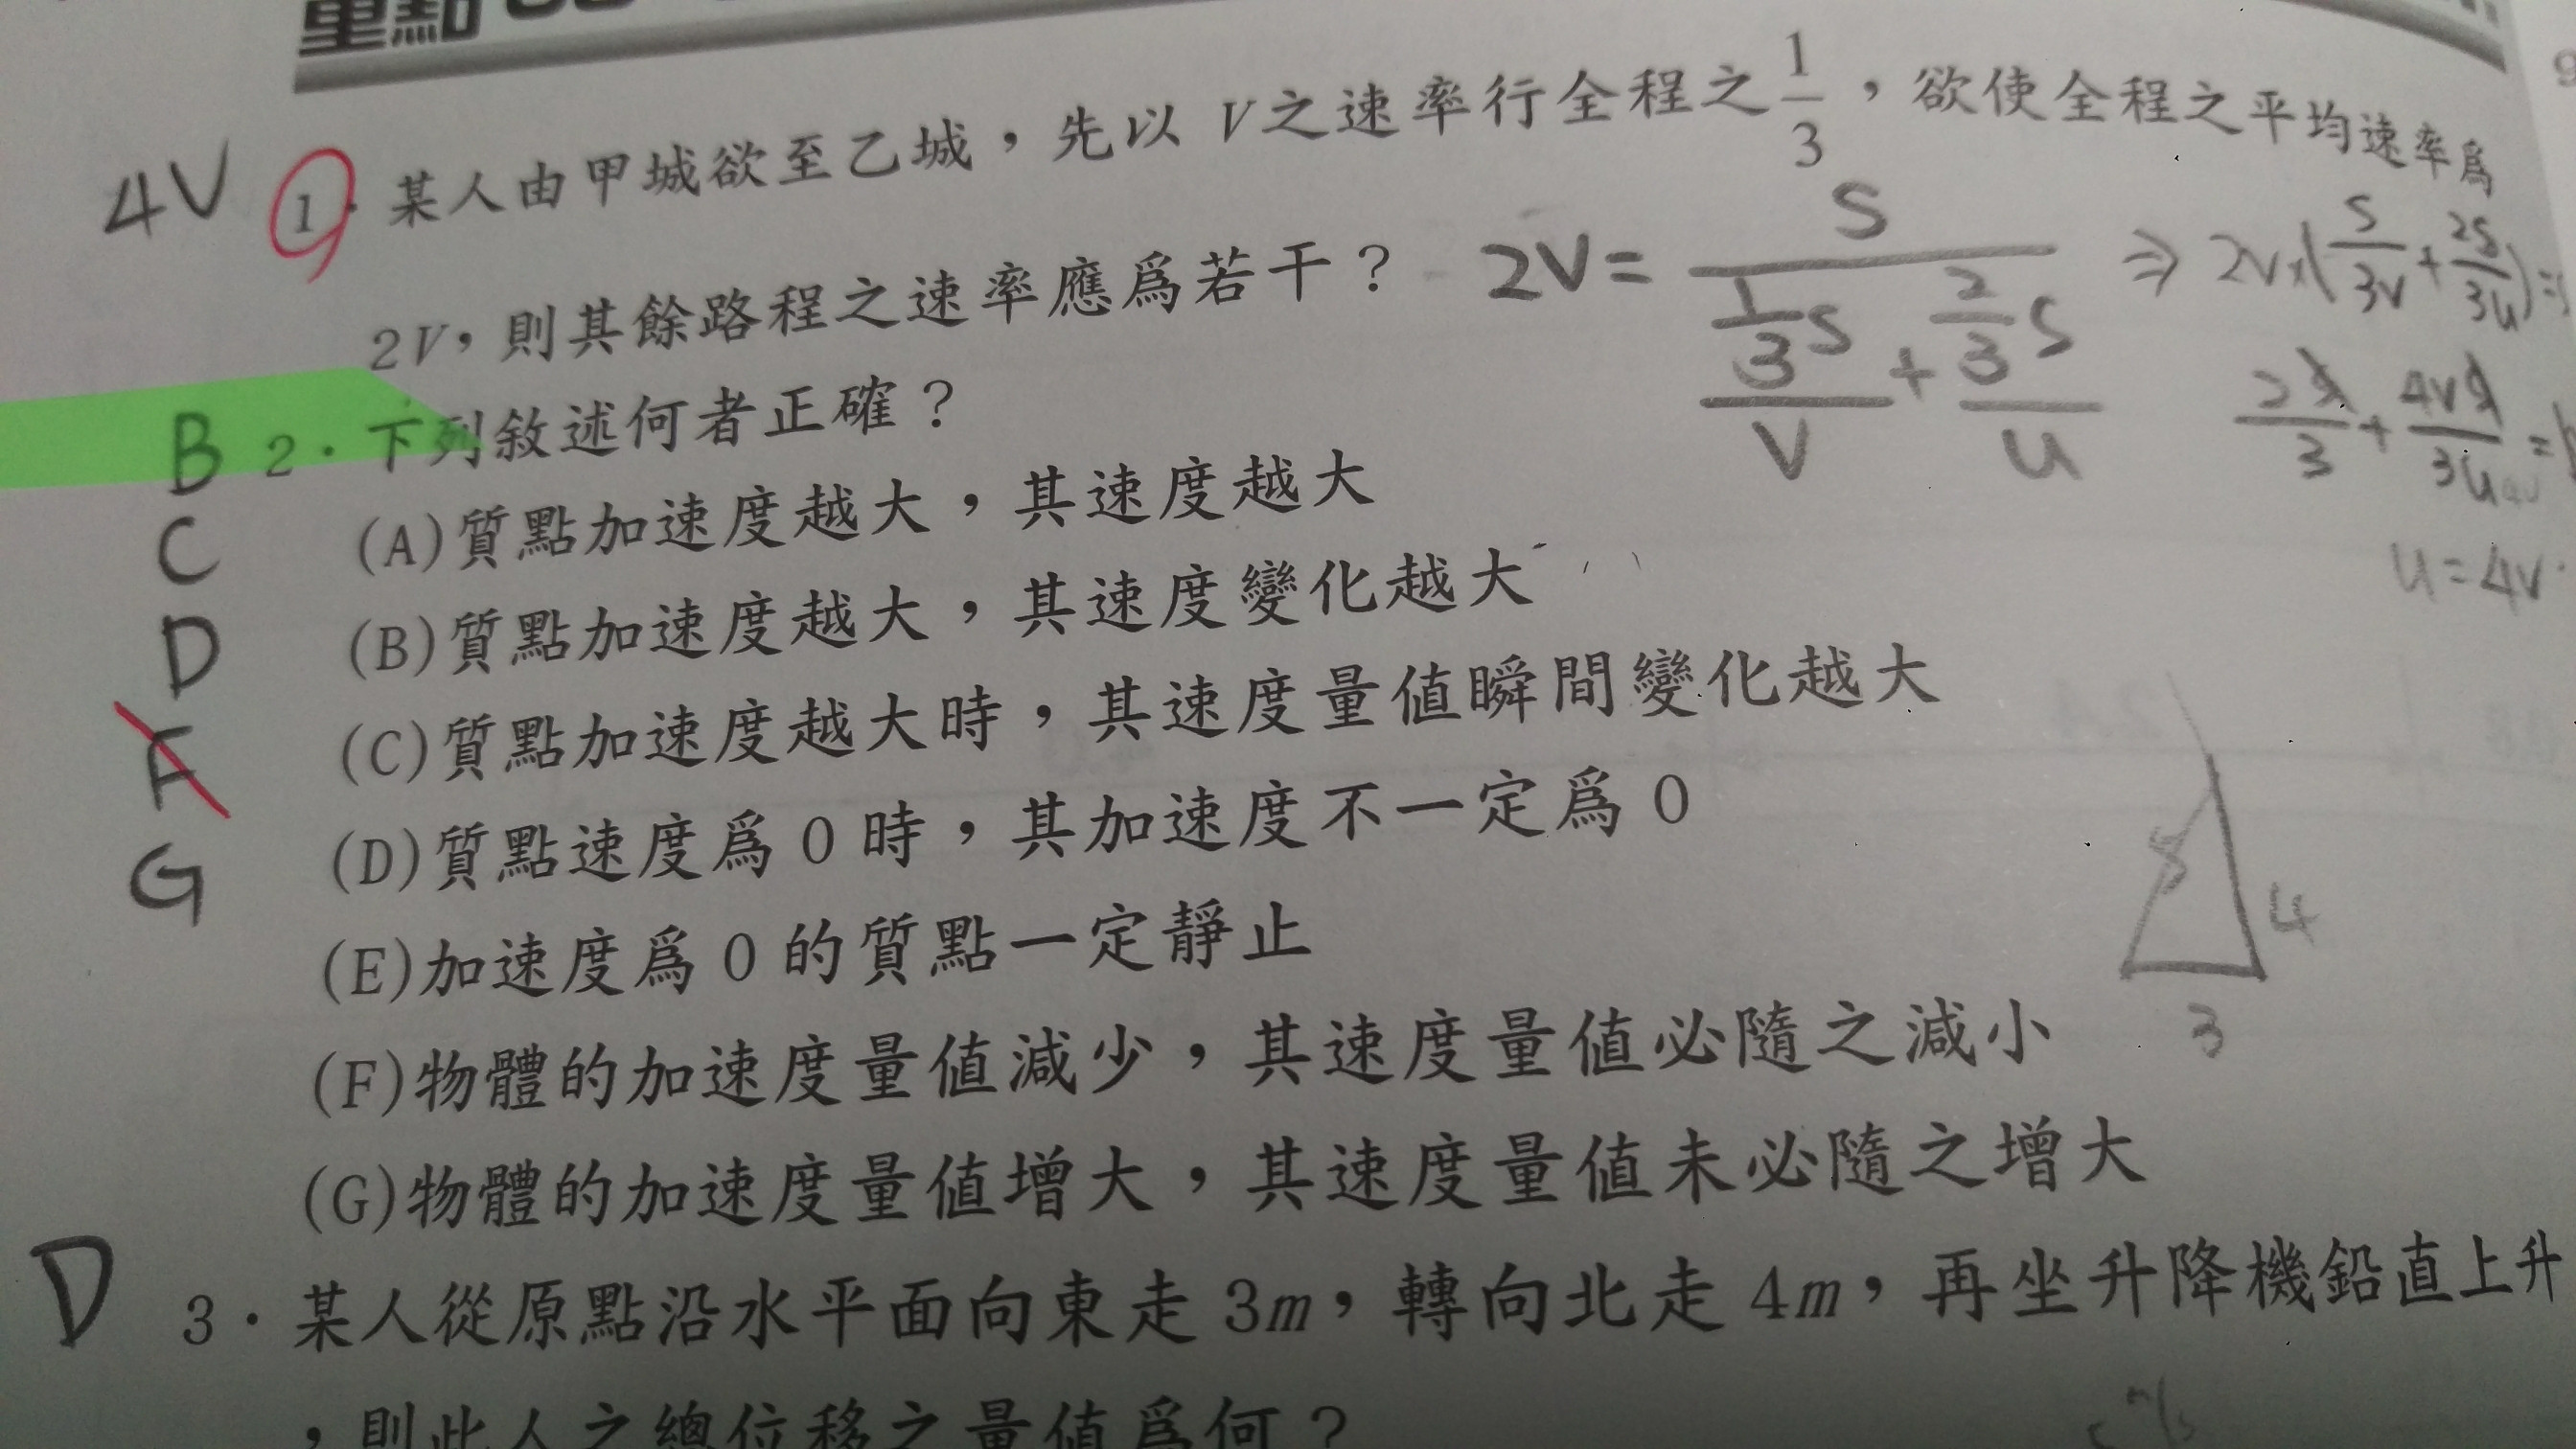 重點
4V 1. 某人由甲城欲至乙城，先以 V之速率行全程之1/3，欲使全程之平均速率爲
2V，則其餘路程之速率應爲若干？
2V = S / (1/3 S / V + 2/3 S / u) ⇒ 2V×(S/3V + 2S/3u) =
2/3 + 4V/3u =
u = 4V
B 2. 下列敘述何者正確？
C (A)質點加速度越大，其速度越大
D (B)質點加速度越大，其速度變化越大
F (C)質點加速度越大時，其速度量值瞬間變化越大
G (D)質點速度爲 0 時，其加速度不一定爲 0
(E)加速度爲 0 的質點一定靜止
(F)物體的加速度量值減少，其速度量值必隨之減小
(G)物體的加速度量值增大，其速度量值未必隨之增大
5
4
3
D 3. 某人從原點沿水平面向東走 3m，轉向北走 4m，再坐升降機鉛直上升
，則此人之總位移之量值爲何？